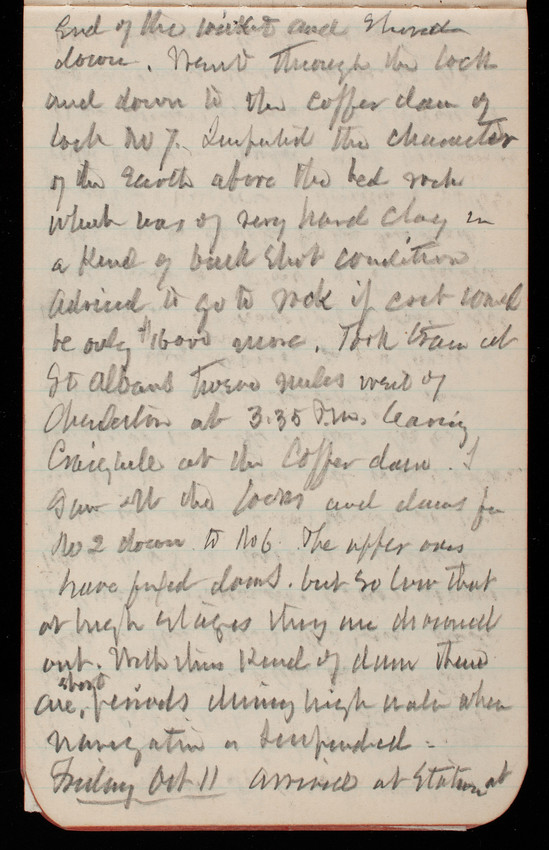 End of the wicket and Shoved
down. Went through the lock
and down to the coffer dam of
lock No 7. Inspected the character
of the Earth above the bed rock
which was of very hard clay in
a kind of buck shot condition
Advised to go to rock if cost would
be only $1600 more. Took train at
St Albans twelve miles west of
Charleston at 3.35 P.m. leaving
Craighill at the Coffer dam. I
Saw all the locks and dams fr
No 2 down to No 6. The upper ones
have fixed dams. but so low that
at high stages they are drowned
out. With this kind of dam there
are, short periods during high water when
navigation is suspended -
Friday Oct 11 arrived at Station at